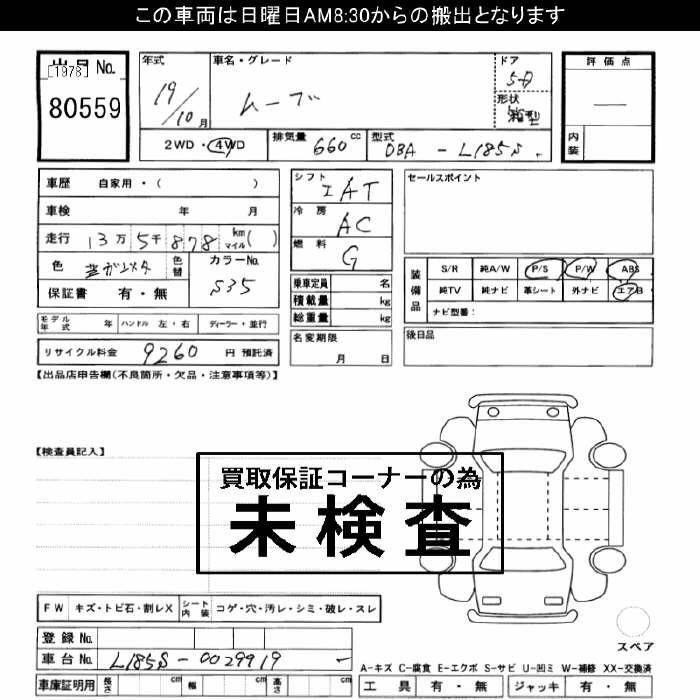 この車両は日曜日AM8:30からの搬出となります
出品No.
[1978]
80559
年式
19/10月
車名・グレード
ムーブ
ドア
5D
形状
箱型
2WD・4WD
排気量
660cc
型式
DBA - L185S
評価点
内装
車歴 自家用・( )
車検 年 月
走行 13万5千878 km マイル( )
色
色替
カラーNo.
S35
保証書 有・無
シフト
IAT
冷房
AC
燃料
G
乗車定員 名
積載量 kg
総重量 kg
名変期限
月 日
セールスポイント
装備品
S/R 純A/W P/S P/W ABS
純TV 純ナビ 革シート 外ナビ エアB
ナビ型番:
後日品
モデル年式 年 ハンドル 左・右 ディーラー・並行
リサイクル料金 9260 円 預託済
【出品店申告欄(不良箇所・欠品・注意事項等)】
【検査員記入】
買取保証コーナーの為
未検査
FW キズ・トビ石・割レX シート内装 コゲ・穴・汚レ・シミ・破レ・スレ
登録No.
車台No. L185S-0029919
車庫証明用 長さ cm 幅 cm 高さ cm
スペア
A-キズ C-腐食 E-エクボ S-サビ U-凹ミ W-補修 XX-交換済
工具 有・無 ジャッキ 有・無